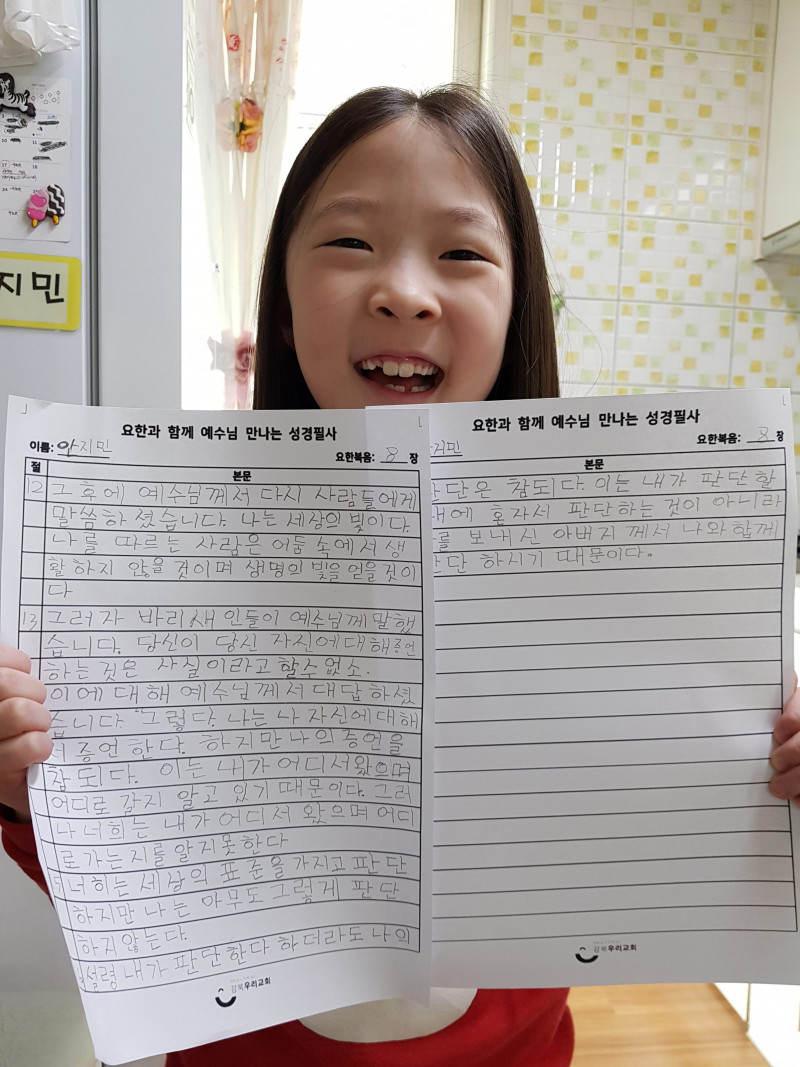 지민
요한과 함께 예수님 만나는 성경필사
이름: 안지민
요한복음: 8 장
절
본문
12 그 후에 예수님께서 다시 사람들에게
말씀하셨습니다. 나는 세상의 빛이다.
나를 따르는 사람은 어둠 속에서 생
활하지 않을 것이며 생명의 빛을 얻을 것이
다
13 그러자 바리새인들이 예수님께 말했
습니다. 당신이 당신 자신에 대해 증언
하는 것은 사실이라고 할 수 없소.
이에 대해 예수님께서 대답하셨
습니다. "그렇다. 나는 나 자신에 대해
서 증언한다. 하지만 나의 증언을
참되다. 이는 내가 어디서 왔으며
어디로 갈지 알고 있기 때문이다. 그러
나 너희는 내가 어디서 왔으며 어디
로 가는지를 알지 못한다
너희는 세상의 표준을 가지고 판단
하지만 나는 아무도 그렇게 판단
하지 않는다.
설령 내가 판단한다 하더라도 나의
강북우리교회
요한과 함께 예수님 만나는 성경필사
지민
요한복음: 8 장
본문
판단은 참되다. 이는 내가 판단할
때에 혼자서 판단하는 것이 아니라
나를 보내신 아버지께서 나와 함께
판단 하시기 때문이다.
강북우리교회